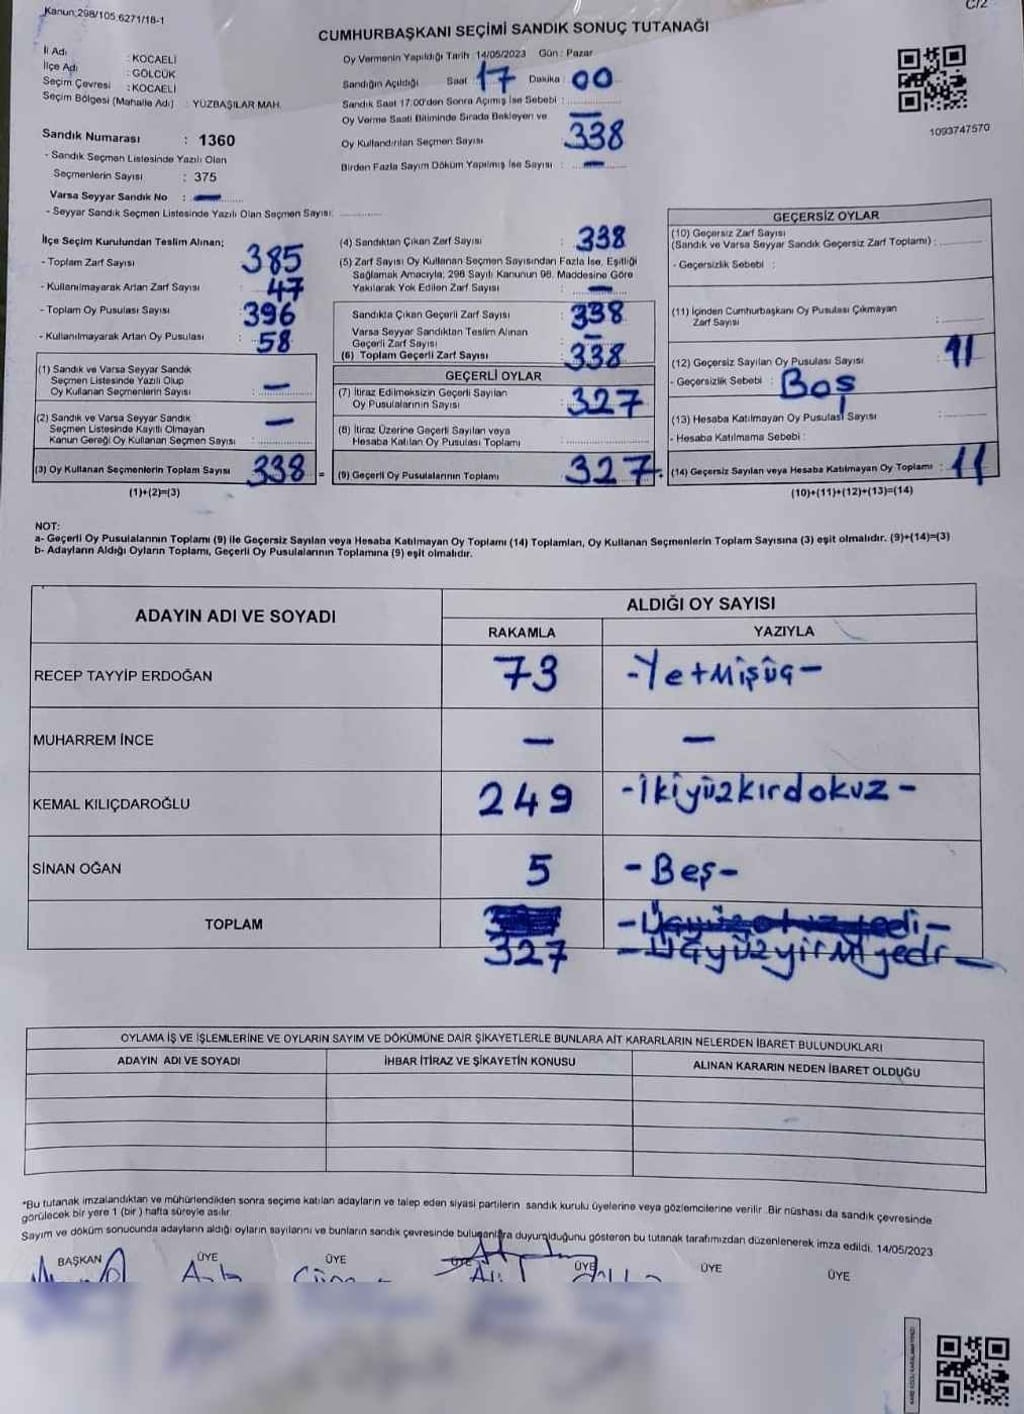 Kanun:298/105,6271/18-1
C/2
CUMHURBAŞKANI SEÇİMİ SANDIK SONUÇ TUTANAĞI
İl Adı : KOCAELİ
İlçe Adı : GÖLCÜK
Seçim Çevresi : KOCAELİ
Seçim Bölgesi (Mahalle Adı) : YÜZBAŞILAR MAH.
Oy Vermenin Yapıldığı Tarih : 14/05/2023 Gün : Pazar
Sandığın Açıldığı Saat 17 Dakika : 00
Sandık Saat 17:00'den Sonra Açımış İse Sebebi :
Oy Verme Saati Bitiminde Sırada Bekleyen ve
Oy Kullandırılan Seçmen Sayısı 338
Birden Fazla Sayım Döküm Yapılmış İse Sayısı : —
1093747570
Sandık Numarası : 1360
- Sandık Seçmen Listesinde Yazılı Olan
Seçmenlerin Sayısı : 375
Varsa Seyyar Sandık No : —
- Seyyar Sandık Seçmen Listesinde Yazılı Olan Seçmen Sayısı:
İlçe Seçim Kurulundan Teslim Alınan;
- Toplam Zarf Sayısı 385
- Kullanılmayarak Artan Zarf Sayısı 47
- Toplam Oy Pusulası Sayısı 396
- Kullanılmayarak Artan Oy Pusulası : 58
(1) Sandık ve Varsa Seyyar Sandık
Seçmen Listesinde Yazılı Olup
Oy Kullanan Seçmenlerin Sayısı : —
(2) Sandık ve Varsa Seyyar Sandık
Seçmen Listesinde Kayıtlı Olmayan
Kanun Gereği Oy Kullanan Seçmen Sayısı : —
(3) Oy Kullanan Seçmenlerin Toplam Sayısı 338 =
(1)+(2)=(3)
(4) Sandıktan Çıkan Zarf Sayısı : 338
(5) Zarf Sayısı Oy Kullanan Seçmen Sayısından Fazla İse, Eşitliği
Sağlamak Amacıyla; 298 Sayılı Kanunun 98. Maddesine Göre
Yakılarak Yok Edilen Zarf Sayısı : —
Sandıkta Çıkan Geçerli Zarf Sayısı : 338
Varsa Seyyar Sandıktan Teslim Alınan
Geçerli Zarf Sayısı : —
(6) Toplam Geçerli Zarf Sayısı : 338
GEÇERLİ OYLAR
(7) İtiraz Edilmeksizin Geçerli Sayılan
Oy Pusulalarının Sayısı : 327
(8) İtiraz Üzerine Geçerli Sayılan veya
Hesaba Katılan Oy Pusulası Toplamı
(9) Geçerli Oy Pusulalarının Toplamı 327 +
GEÇERSİZ OYLAR
(10) Geçersiz Zarf Sayısı
(Sandık ve Varsa Seyyar Sandık Geçersiz Zarf Toplamı) :
- Geçersizlik Sebebi :
(11) İçinden Cumhurbaşkanı Oy Pusulası Çıkmayan
Zarf Sayısı :
(12) Geçersiz Sayılan Oy Pusulası Sayısı : 11
- Geçersizlik Sebebi : Boş
(13) Hesaba Katılmayan Oy Pusulası Sayısı :
- Hesaba Katılmama Sebebi :
(14) Geçersiz Sayılan veya Hesaba Katılmayan Oy Toplamı : 11
(10)+(11)+(12)+(13)=(14)
NOT:
a- Geçerli Oy Pusulalarının Toplamı (9) ile Geçersiz Sayılan veya Hesaba Katılmayan Oy Toplamı (14) Toplamları, Oy Kullanan Seçmenlerin Toplam Sayısına (3) eşit olmalıdır. (9)+(14)=(3)
b- Adayların Aldığı Oyların Toplamı, Geçerli Oy Pusulalarının Toplamına (9) eşit olmalıdır.
ADAYIN ADI VE SOYADI
ALDIĞI OY SAYISI
RAKAMLA YAZIYLA
RECEP TAYYİP ERDOĞAN 73 -Yetmişüç-
MUHARREM İNCE — —
KEMAL KILIÇDAROĞLU 249 -İkiyüzkırdokuz-
SİNAN OĞAN 5 -Beş-
TOPLAM -Üçyüzotuzyedi-
327 -Üçyüzyirmiyedi-
OYLAMA İŞ VE İŞLEMLERİNE VE OYLARIN SAYIM VE DÖKÜMÜNE DAİR ŞİKAYETLERLE BUNLARA AİT KARARLARIN NELERDEN İBARET BULUNDUKLARI
ADAYIN ADI VE SOYADI İHBAR İTİRAZ VE ŞİKAYETİN KONUSU ALINAN KARARIN NEDEN İBARET OLDUĞU
*Bu tutanak imzalandıktan ve mühürlendikten sonra seçime katılan adayların ve talep eden siyasi partilerin sandık kurulu üyelerine veya gözlemcilerine verilir. Bir nüshası da sandık çevresinde
görülecek bir yere 1 (bir) hafta süreyle asılır.
Sayım ve döküm sonucunda adayların aldığı oyların sayılarını ve bunların sandık çevresinde bulunanlara duyurulduğunu gösteren bu tutanak tarafımızdan düzenlenerek imza edildi. 14/05/2023
BAŞKAN ÜYE ÜYE ÜYE ÜYE ÜYE ÜYE